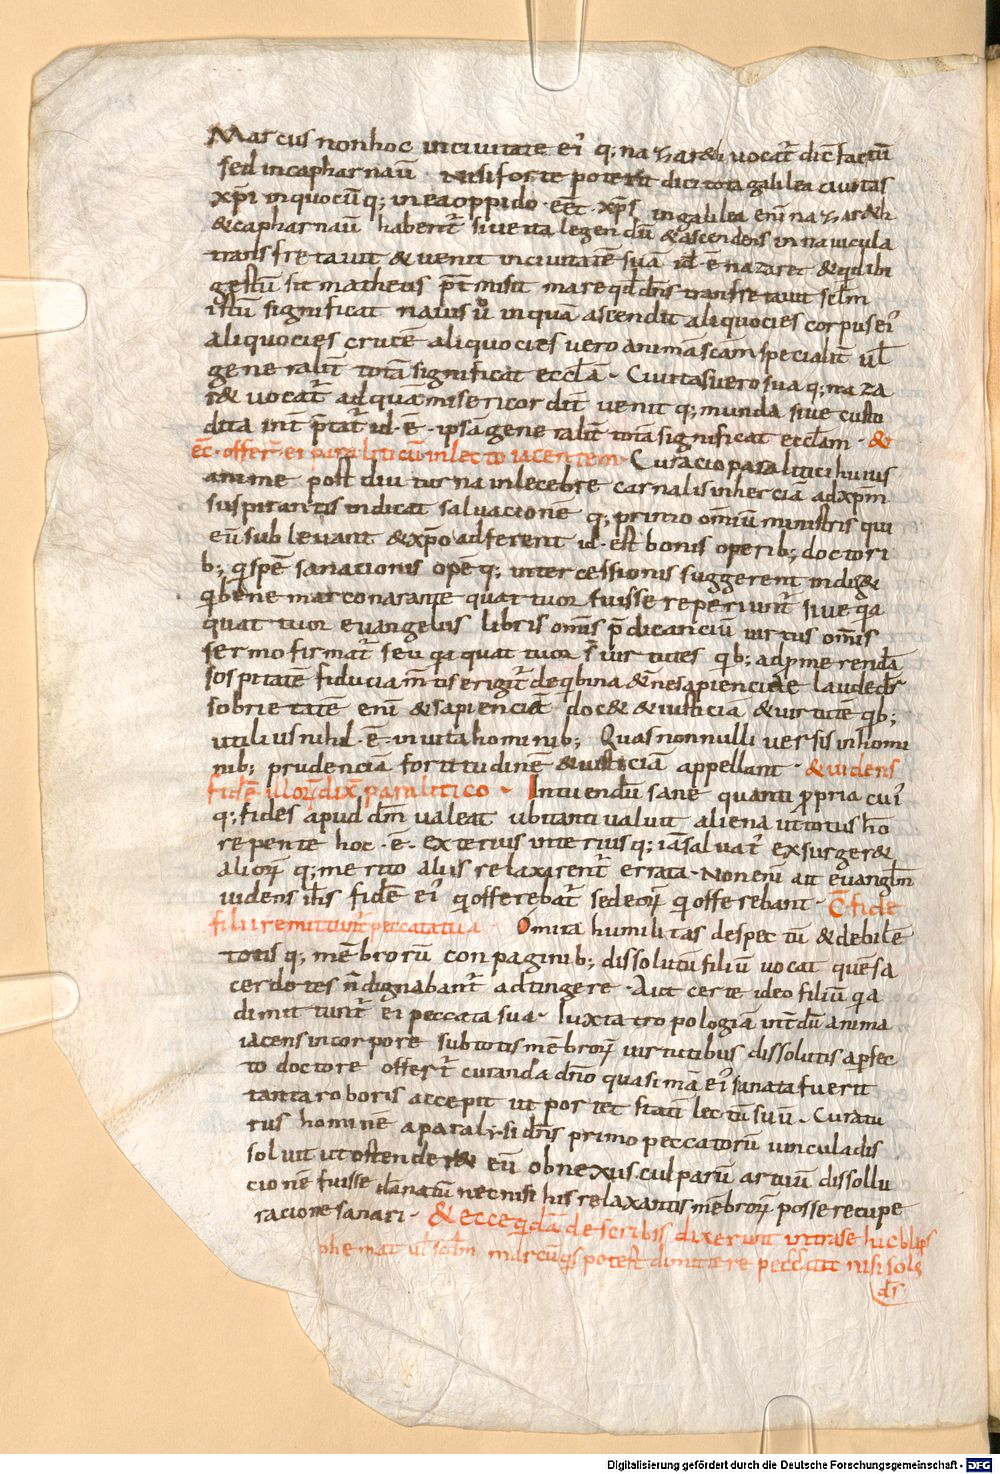 Marcus nonhoc inciuitate ei᷒ q; nazareth vocat̄ dic̄ factū
sed incapharnaū · nisiforte poterit dici tota galilea ciuitas
xp̄i inquocūq; ineaoppido · eēt xp̄s ingalilea enī nazareth
& capharnaū haberent̄ siue ita legendū & ascendens innauicula
transfretauit & uenit inciuitatē sua id ē nazaret & qd ibi
gestū sit matheus p̄t misit mare qd dn̄s transfretauit sc̄lm
istū significat nauis ů inquā ascendit aliquocies corpus ei᷒
aliquocies crucē aliquocies uero animāscām specialit̄ ul̄
generalit̄ totā significat eccl̄ā · Ciuitasuero sua q; naza
r& uocat̄ adquā misericordit̄ uenit q; munda siue custo
dita int̄ p̄tat̄ id · ē · ipsa generalit̄ totā significat eccl̄am · &
ec̄ · offer̄ · ei paraliticū inlecto iacentem · Curacio paralitici huius
anime post diuturna inlecebre carnalis inherciā adxp̄m
suspirantis indicat saluacione q; primo omiū ministris qui
eū subleuant & xp̄o adferent id · est bonis operib; doctori
b; qi spē sanacionis opē q; intercessionis suggerent indig&
qi bene marco narante quattuor fuisse reperiunt̄ siue qa
quattuor euangeliis libris om̄is p̄dicanciū uirtus om̄is
sermo firmat̄ seu qa quattuor s̄ uirtutes qb; adpmerendā
sospitatē fiducia m̄tis erigit̄ deqb in a& ernesapienciae laude dr̄
sobrietatē enī & sapienciā doc& & iusticia & uirtutē qb;
utilius nihil · ē · inuita hominib; Quas nonnulli uersis inhomi
nib; prudencia fortitudinē & iusticiā appellant · & uidens
fidē illoꝝ dix̄ paralitico · Intuendū sane quanti p̄pria cui᷒
q; fides apud dm̄ ualeat ubi tanti ualuit aliena ut totus ho
repente hoc · ē · exterius interius q; iā saluat̄ exsurger&
alioꝝ q; merito aliis relaxarent̄ errata · Non enī ait euangl̄m
uidens ih̄s fidē ei᷒ qi offerebat̄ sed eoꝝ qi offerebant · C̄fide
fili remittunt̄ peccata tua · O mira humilitas despectū & debilē
totis q; mēbrorū conpaginib; dissolutū filiū uocat quē sa
cerdotes n̄ dignabant̄ adtingere · Aut certe ideo filiū qia
dimittunt̄ ei peccata sua · Iuxta tropologiā int̄dū anima
iacens incorpore subtotis mēbroꝝ uirtutibus dissolutis apfec
to doctore offert̄ curanda dn̄o quasi mīa ei᷒ sanata fuerit
tanta roboris accepit ut portet statī lectū suū · Curatu
rus hominē a paralysi dn̄s primo peccatorū uincula dis
soluit ut ostender& eū obnexus culparū artuū dissollu
cionē fuisse dānatū nec nisi his relaxantis mēbroꝝ posse recupe
racione sanari · & ecce qidā de scribis dixerunt intrase hic blaps
phemat ul̄ scdm marcū qis potest dimittere peccata nisi sols
ds̄
Digitalisierung gefördert durch die Deutsche Forschungsgemeinschaft - DFG